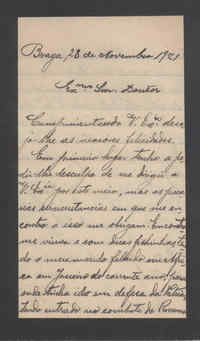 Braga, 28 de Novembro 1921
Exmo Snr. Doutor
Cumprimentando V. Exa dese
jo-lhe as maiores felicidades.
Em primeiro lugar tenho a pe
dir-lhe desculpa de me dirigir a
V. Exa por este meio, mas as preca
rias circunstancias em que me en
contro a isso me obrigam. Encontro
me viuva e com dois filhinhos
do o meu marido falecido em Afri
ca em Janeiro do corrente ano, para
onde tinha ido em defesa da Patria,
tendo entrado no combate de